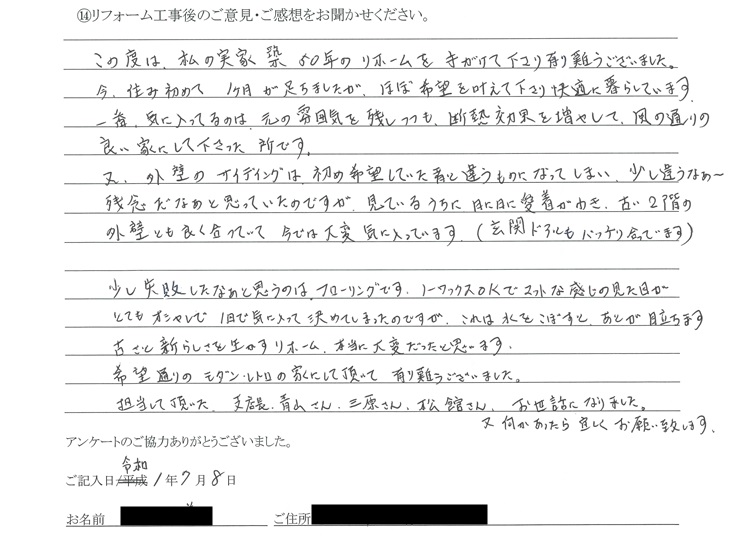 ⑭リフォーム工事後のご意見・ご感想をお聞かせください。
この度は、私の実家 築50年のリホームを手がけて下さり有り難うございました。
今、住み初めて 1ヶ月が足ちましたが、ほぼ希望を叶えて下さり快適に暮らしています
一番、気に入ってるのは、元の雰囲気を残しつつも、断熱効果を増やして、風の通りの
良い家にして下さった所です。
又、外壁のサイディングは、初め希望していた者と違うものになってしまい、少し違うなぁ〜
残念だなあと思っていたのですが、見ているうちに日に日に愛着がわき、古い2階の
外壁とも良く合っていて今では大変気に入っています。(玄関ドアもバッチリ合ってます)
少し失敗したなぁと思うのは、フローリングです。ノーワックスOKでマットな感じの見た目が
とてもオシャレで 1目で気に入って決めてしまったのですが、これは水をこぼすと、あとが目立ちます
古さと新らしさを生かすリホーム、本当に大変だったと思います。
希望通りのモダン・レトロの家にして頂いて有り難うございました。
担当して頂いた、支店長、青山さん、三原さん、松館さん、お世話になりました。
又何かあったら宜しくお願い致します。
アンケートのご協力ありがとうございました。
令和
ご記入日 平成 1年7月8日
お名前 ご住所